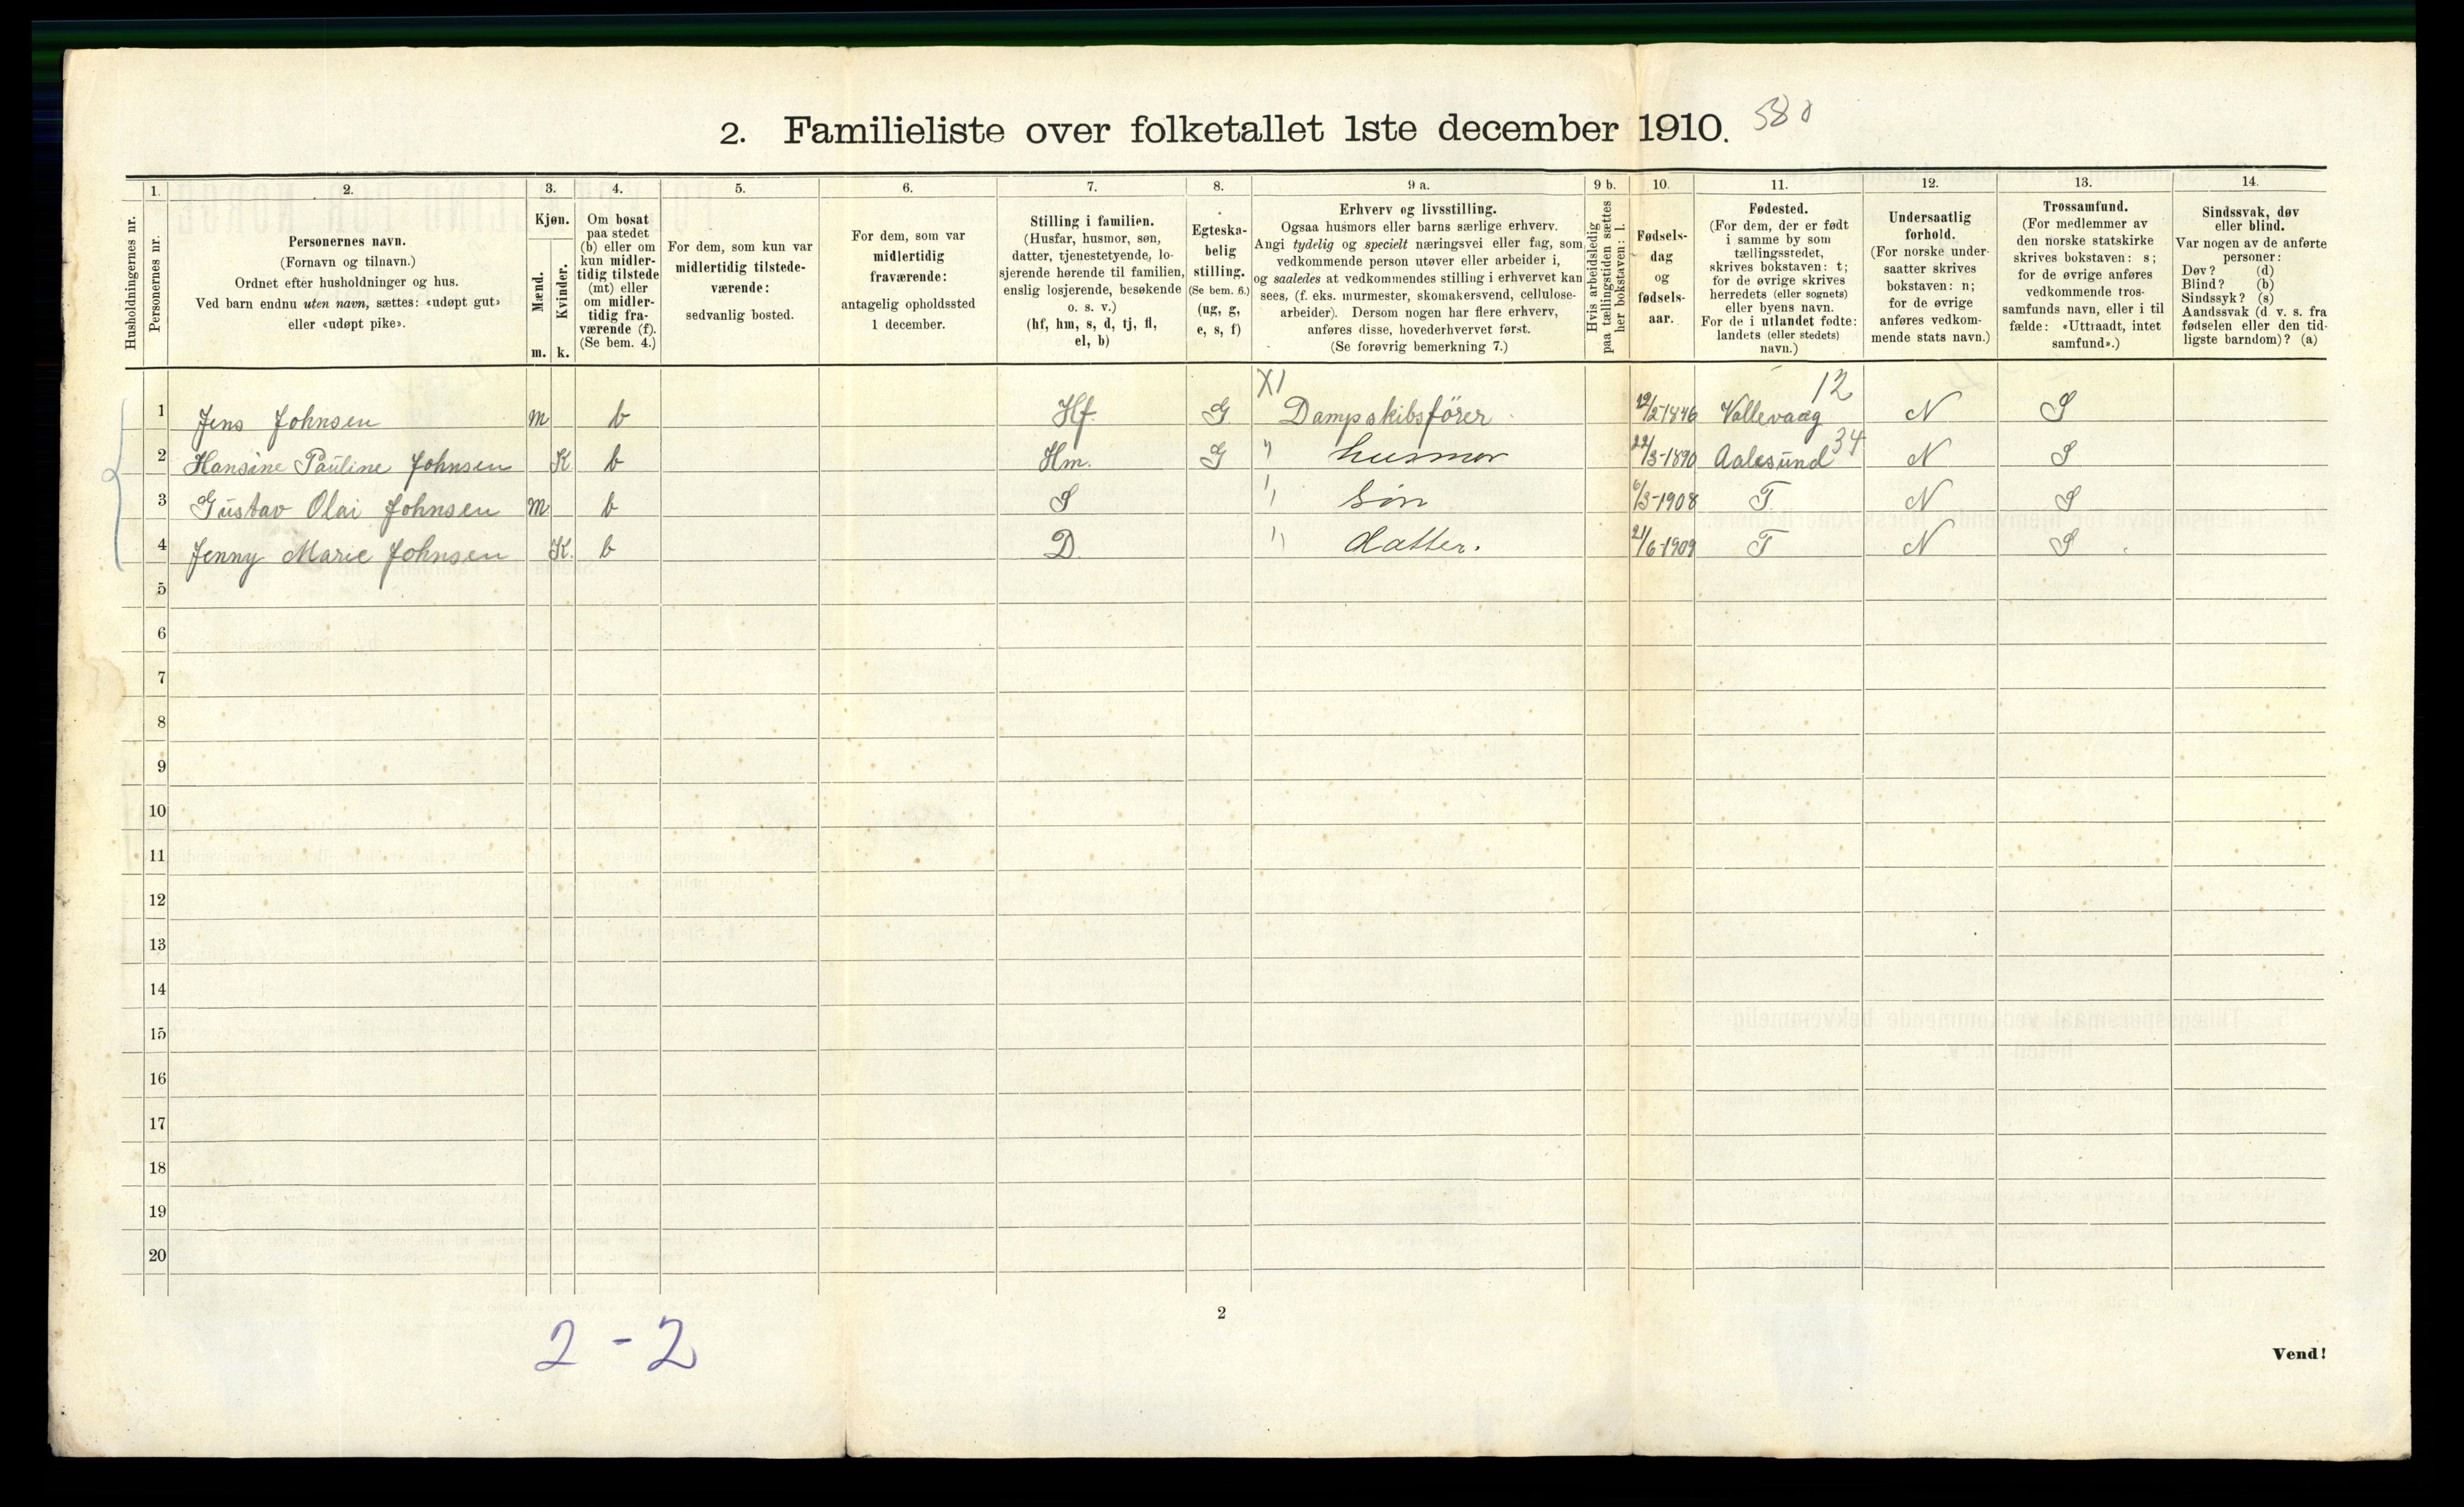 2. Familieliste over folketallet 1ste december 1910. 580
Husholdningernes nr.
1.
Personernes nr.
2.
Personernes navn.
(Fornavn og tilnavn.)
Ordnet efter husholdninger og hus.
Ved barn endnu uten navn, sættes: «udøpt gut»
eller «udøpt pike».
3.
Kjøn.
Mænd.
Kvinder.
m. k.
4.
Om bosat
paa stedet
(b) eller om
kun midler-
tidig tilstede
(mt) eller
om midler-
tidig fra-
værende (f).
(Se bem. 4.)
5.
For dem, som kun var
midlertidig tilstede-
værende:
sedvanlig bosted.
6.
For dem, som var
midlertidig
fraværende:
antagelig opholdssted
1 december.
7.
Stilling i familien.
(Husfar, husmor, søn,
datter, tjenestetyende, lo-
sjerende hørende til familien,
enslig losjerende, besøkende
o. s. v.)
(hf, hm, s, d, tj, fl,
el, b)
8.
Egteska-
belig
stilling.
(Se bem. 6.)
(ug, g,
e, s, f)
9 a.
Erhverv og livsstilling.
Ogsaa husmors eller barns særlige erhverv.
Angi tydelig og specielt næringsvei eller fag, som
vedkommende person utøver eller arbeider i,
og saaledes at vedkommendes stilling i erhvervet kan
sees, (f. eks. murmester, skomakersvend, cellulose-
arbeider). Dersom nogen har flere erhverv,
anføres disse, hovederhvervet først.
(Se forøvrig bemerkning 7.)
9 b.
Hvis arbeidsledig
paa tællingstiden sættes
her bokstaven: l.
10.
Fødsels-
dag
og
fødsels-
aar.
11.
Fødested.
(For dem, der er født
i samme by som
tællingsstedet,
skrives bokstaven: t;
for de øvrige skrives
herredets (eller sognets)
eller byens navn.
For de i utlandet fødte:
landets (eller stedets)
navn.)
12.
Undersaatlig
forhold.
(For norske under-
saatter skrives
bokstaven: n;
for de øvrige
anføres vedkom-
mende stats navn.)
13.
Trossamfund.
(For medlemmer av
den norske statskirke
skrives bokstaven: s;
for de øvrige anføres
vedkommende tros-
samfunds navn, eller i til
fælde: «Uttraadt, intet
samfund».)
14.
Sindssvak, døv
eller blind.
Var nogen av de anførte
personer:
Døv? (d)
Blind? (b)
Sindssyk? (s)
Aandssvak (d. v. s. fra
fødselen eller den tid-
ligste barndom)? (a)
X1 12
1 Jens Johnsen m b Hf. G Dampskibsförer 12/2-1846 Vallevaag N S
2 Hansine Pauline Johnsen K b Hm. G " husmor 22/3-1890 Aalesund 34 N S
3 Gustav Olai Johnsen m b S " Sön 6/3-1908 T. N S
4 Jenny Marie Johnsen K. b D " datter. 21/6-1909 T N S
5
6
7
8
9
10
11
12
13
14
15
16
17
18
19
20
2
2 - 2
Vend!